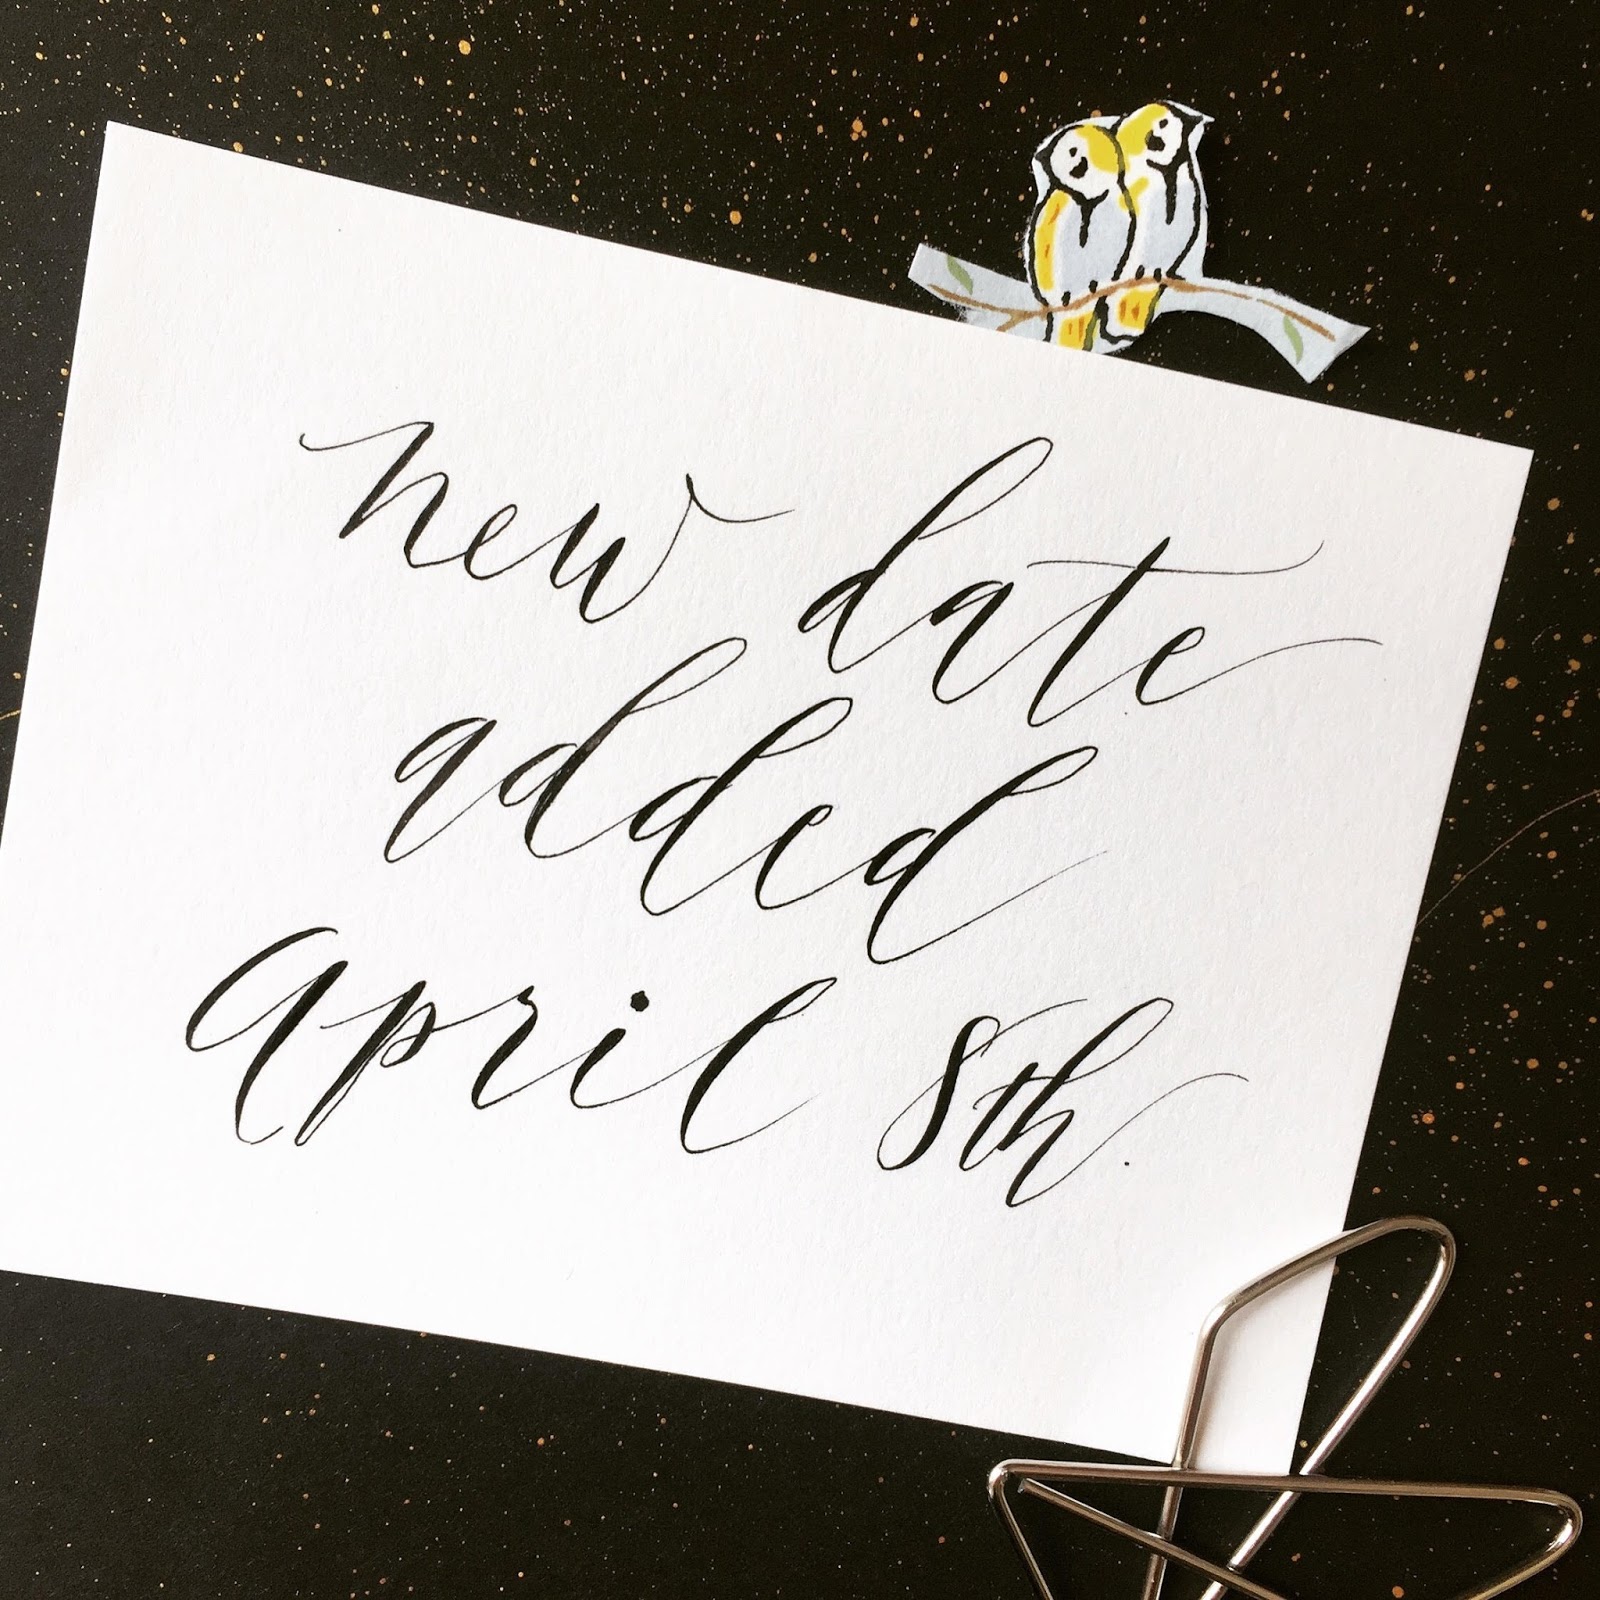 new date
added
april 8th.